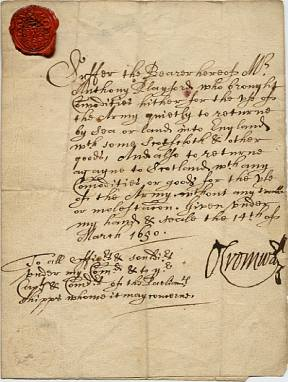 Suffer the Bearer hereof Mr
Anthony Slayford who brought
Comodities hither for the use of
the Army quietly to returne
by Sea or land into England
with some &  other
goods, And also to returne
agayne to Scotland with any
Comodities or goods for the use
of the Army without any trouble
or molestacon. Given under
my hand & seale the 14th of
March 1650.
To all Officers & souldiers
under my Comand & to ye
Capts & Comandrs of the Parliamts
shipps whome it may concerne.
OCromwell